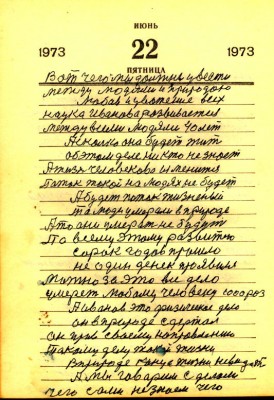 ИЮНЬ
1973 22 1973
ПЯТНИЦА
Вот чего мы должны увести
между людями и природою
Любов и уважение всех
наука Иванова развивается
между всеми людями 40 лет
А сколько она будет жит
об этом деле никто не знает
А тиза человекова изменится
паток такой на людях не будет
А будет поток жизненый
та люди умирали в природе
А то они умерать не будут
По всему этому развитию
сорок годов прошло
не один денек проявил
Можно за это все дело
умереть любому человеку 1000 раз
А Иванов это физическое дело
он в природе зделал
он прав своему направлению
Такому делу такой жизни
В природе жизнь
А мы говорим с делом
чего сами незнаем чего